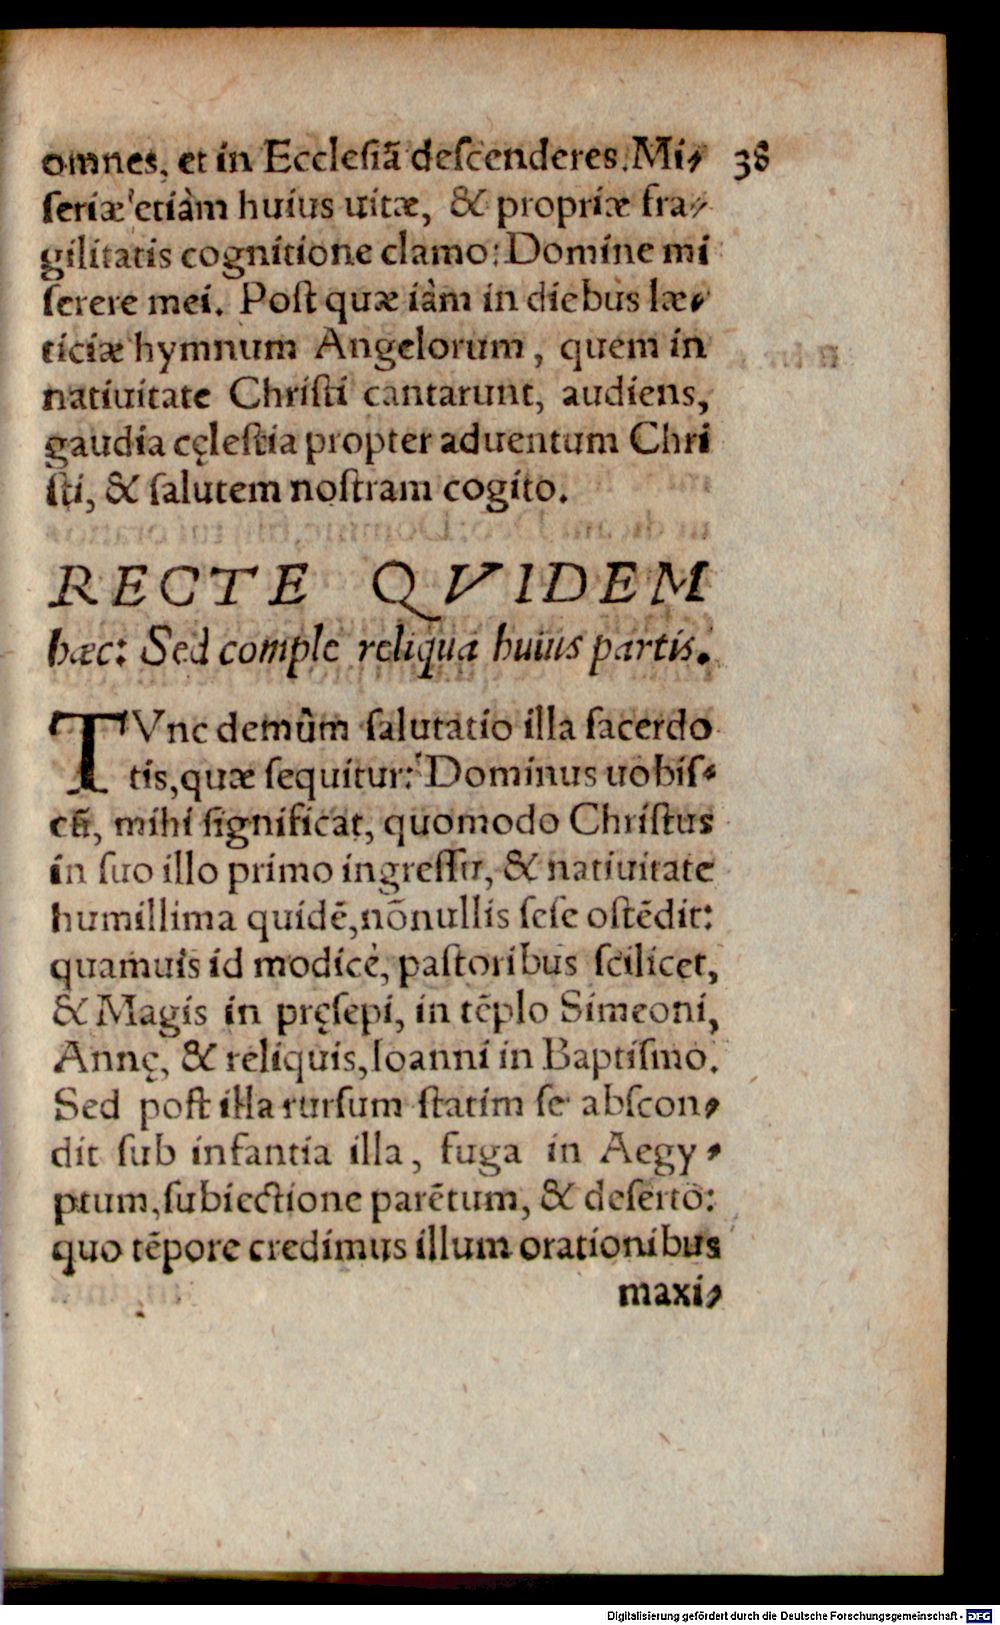 omnes, et in Ecclesiã descenderes. Mi- 38
seriæ etiàm huius uitæ, & propriæ fra-
gilitatis cognitione clamo: Domine mi
serere mei. Post quæ iàm in diebus læ-
ticiæ hymnum Angelorum, quem in
natiuitate Christi cantarunt, audiens,
gaudia cęlestia propter aduentum Chri
sti, & salutem nostram cogito.
RECTE QVIDEM
hæc: Sed comple reliqua huius partis.
TVnc demûm salutatio illa sacerdo
tis, quæ sequitur: Dominus uobis-
cũ, mihi significat, quomodo Christus
in suo illo primo ingressu, & natiuitate
humillima quidẽ, nõnullis sese ostẽdit:
quamuis id modicè, pastoribus scilicet,
& Magis in pręsepi, in tẽplo Simeoni,
Annę, & reliquis, Ioanni in Baptismo.
Sed post illa rursum statim se abscon-
dit sub infantia illa, fuga in Aegy-
ptum, subiectione parẽtum, & deserto:
quo tẽpore credimus illum orationibus
maxi-
Digitalisierung gefördert durch die Deutsche Forschungsgemeinschaft - DFG